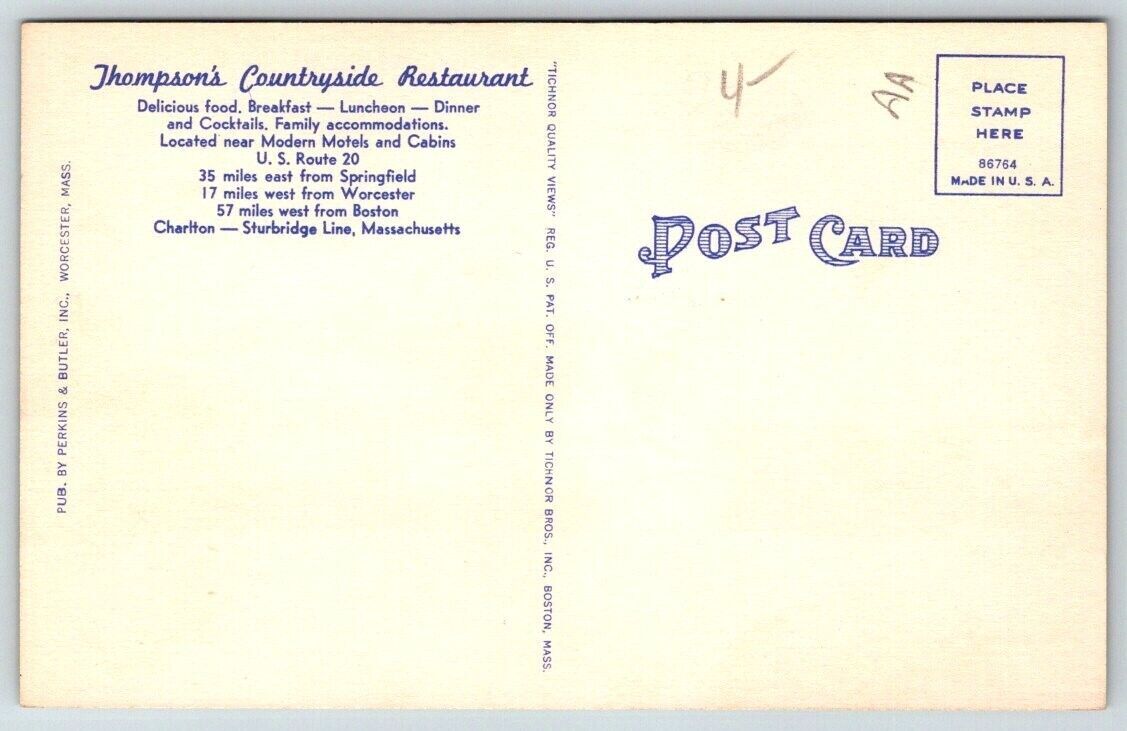 Thompson's Countryside Restaurant
Delicious food. Breakfast — Luncheon — Dinner
and Cocktails. Family accommodations.
Located near Modern Motels and Cabins
U. S. Route 20
35 miles east from Springfield
17 miles west from Worcester
57 miles west from Boston
Charlton — Sturbridge Line, Massachusetts
PUB. BY PERKINS & BUTLER, INC., WORCESTER, MASS.
"TICHNOR QUALITY VIEWS" REG. U. S. PAT. OFF. MADE ONLY BY TICHNOR BROS., INC., BOSTON, MASS.
4-
AA
PLACE
STAMP
HERE
86764
MADE IN U. S. A.
POST CARD